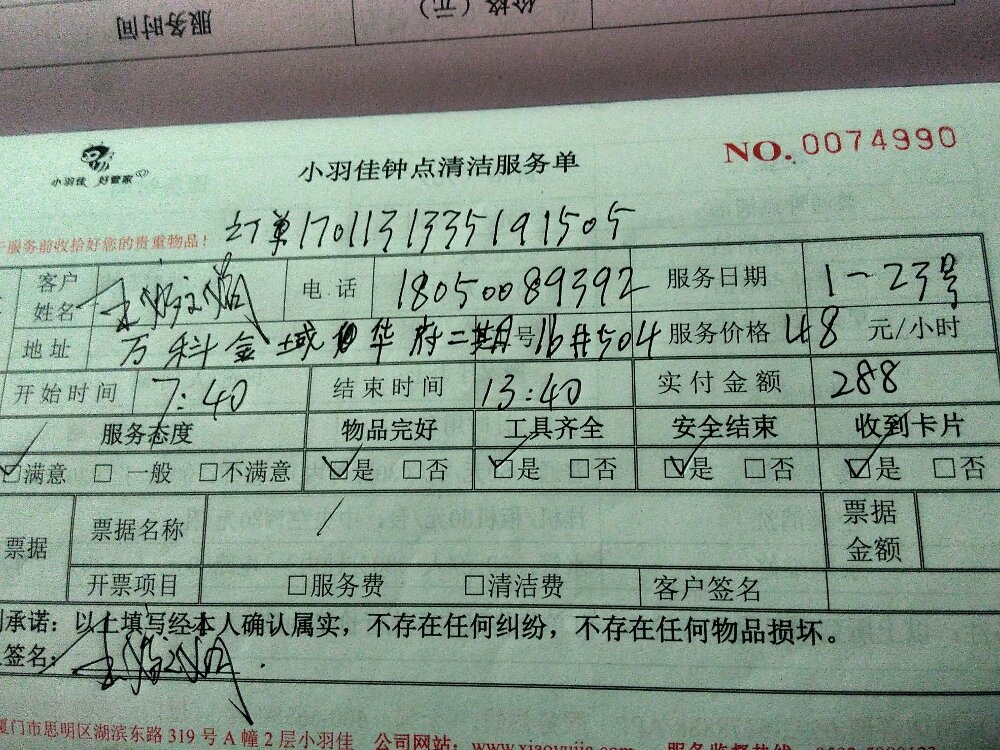 服务时间
价格(元)
小羽佳 好管家
小羽佳钟点清洁服务单
NO. 0074990
服务前收拾好您的贵重物品!
订单17011313351 91505
客户姓名 电话 18050089392 服务日期 1-23号
地址 万科金域华府二期号16#504 服务价格 48 元/小时
开始时间 7:40 结束时间 13:40 实付金额 288
服务态度 物品完好 工具齐全 安全结束 收到卡片
☑满意 □一般 □不满意 ☑是 □否 ☑是 □否 ☑是 □否 ☑是 □否
票据 票据名称 / 票据金额
开票项目 □服务费 □清洁费 客户签名
承诺:以上填写经本人确认属实,不存在任何纠纷,不存在任何物品损坏。
签名:
厦门市思明区湖滨东路 319 号 A 幢 2 层小羽佳 公司网站:www.xiaoyujia.com 服务监督热线